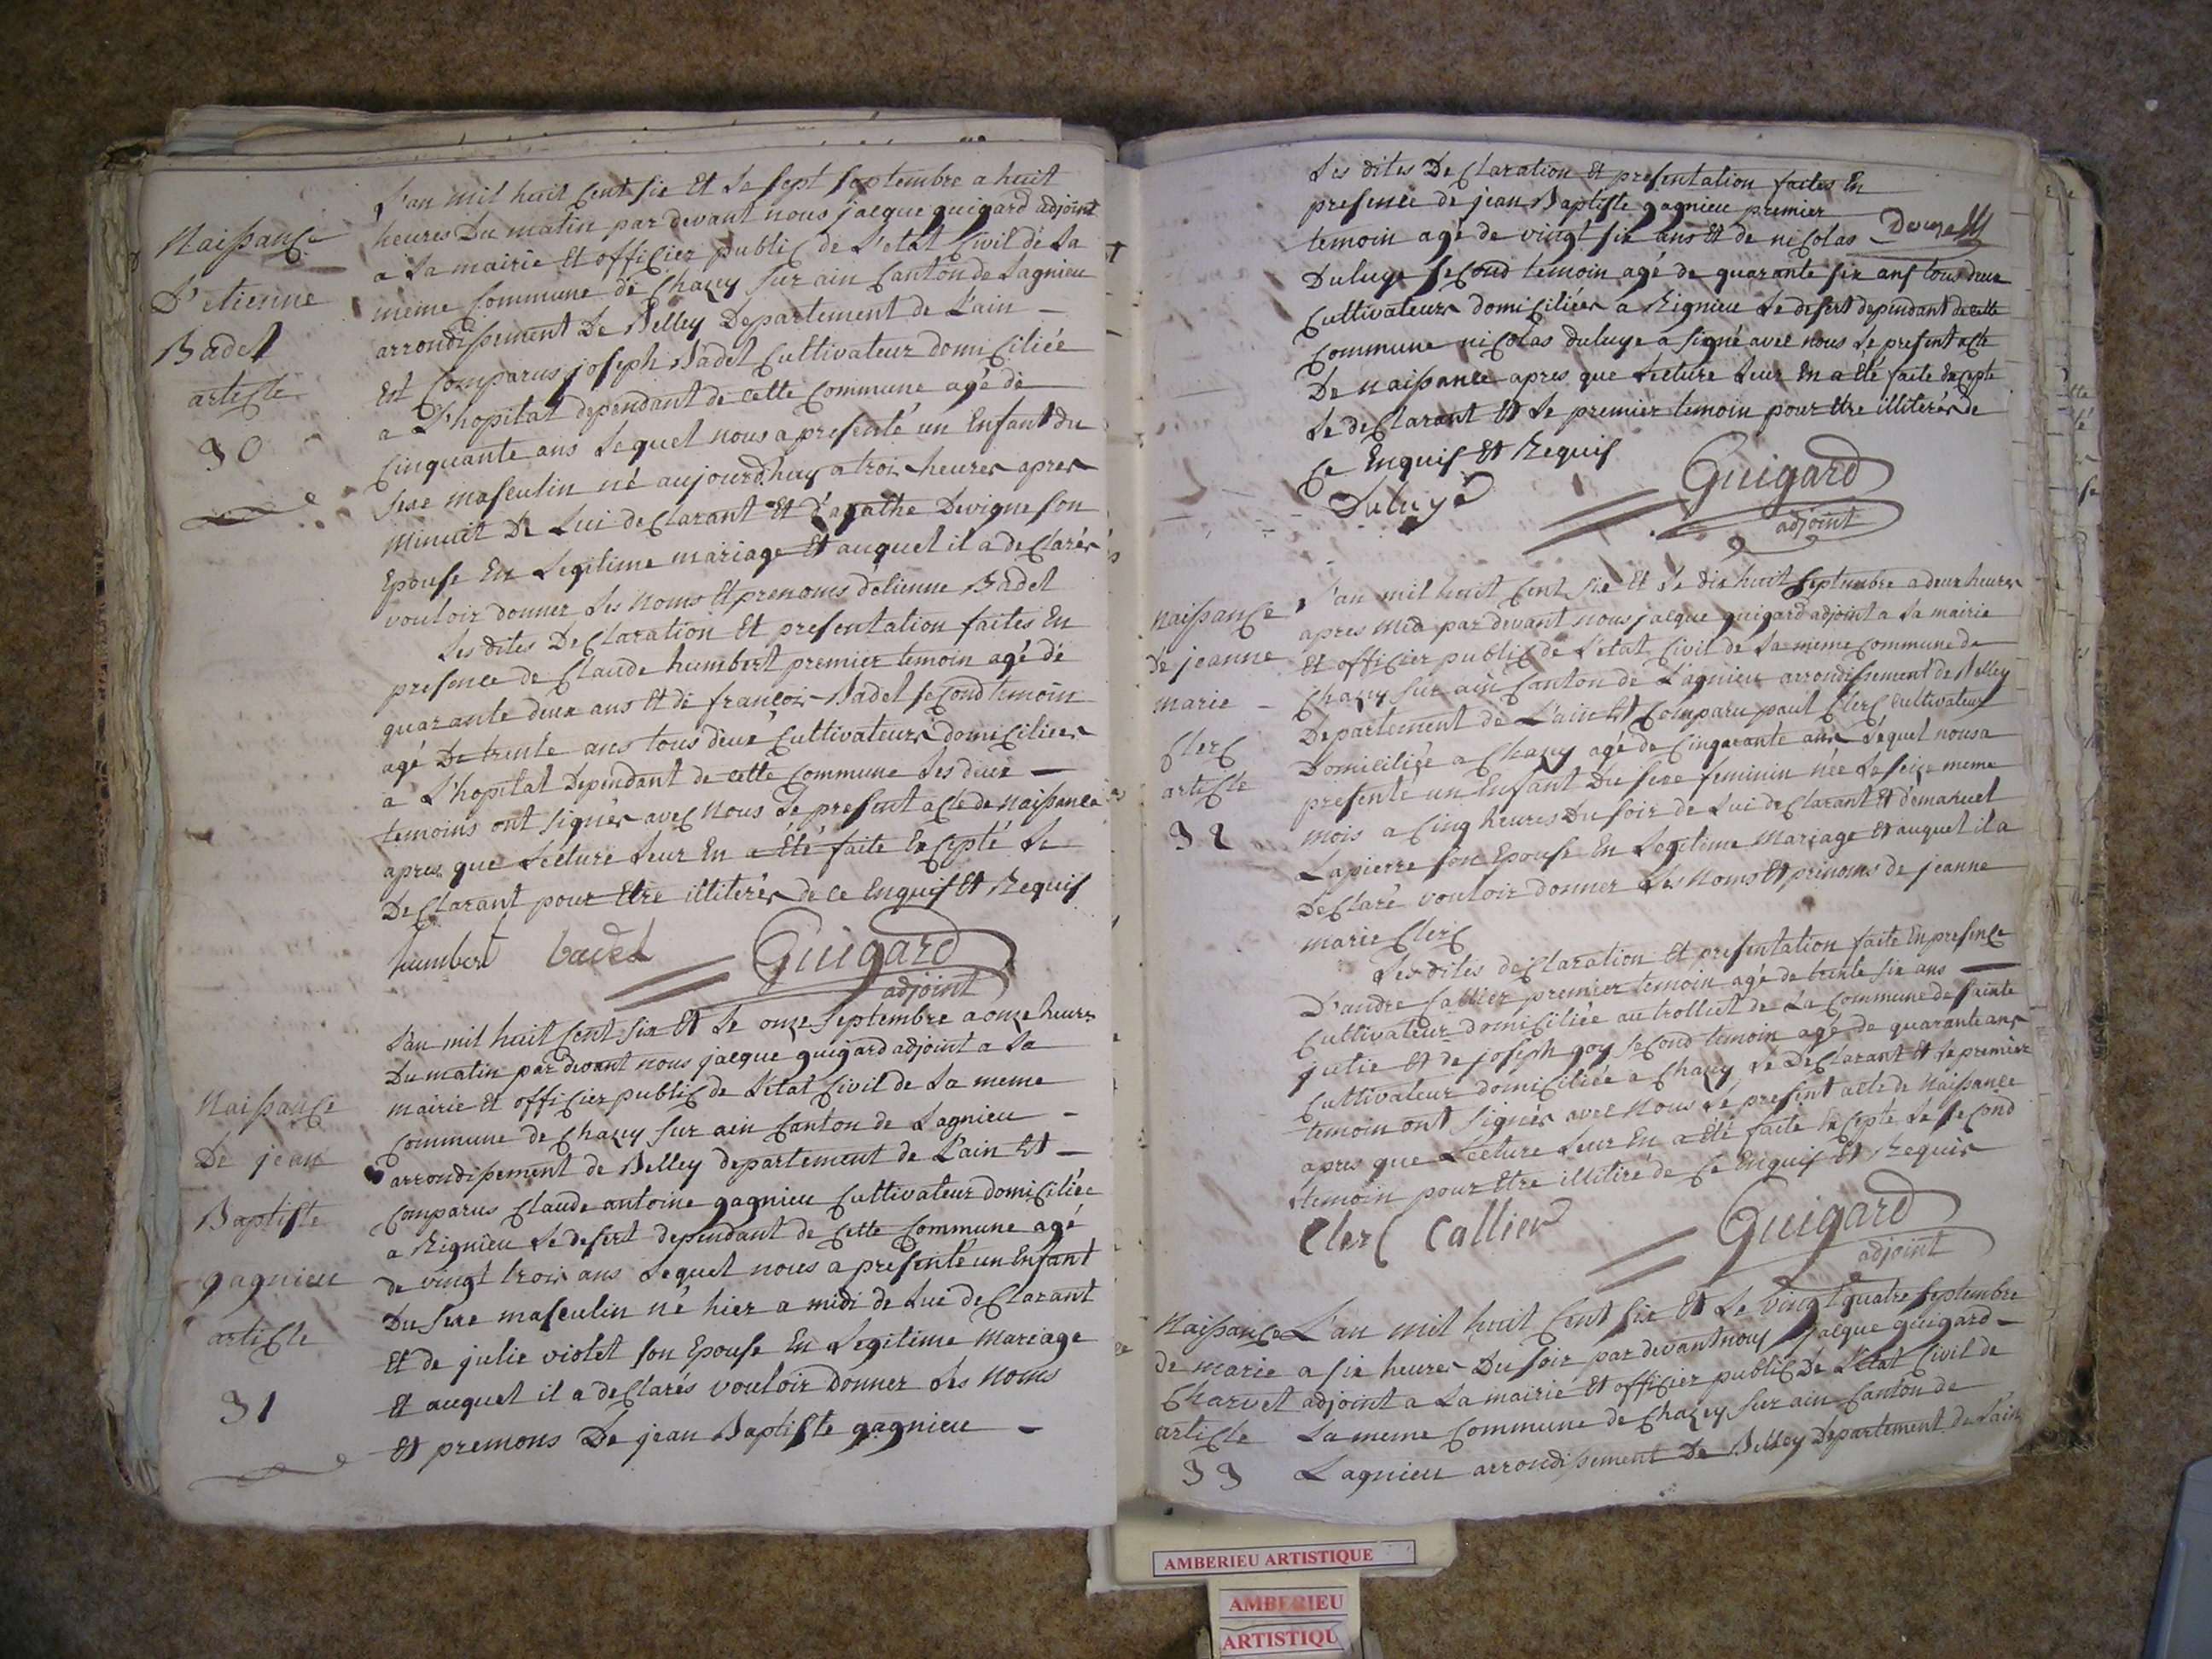 Naissance
D'etienne
Badel
article
30
L'an mil huit Cent six Et Le sept septembre a huit
heures Du matin par devant nous jacque guigard adjoint
a La mairie Et officier public de L'etat Civil de La
meme Commune de Chazey sur ain Canton de Lagnieu
arrondissement De Belley Departement de L'ain –
Est Comparus joseph Badel Cultivateur domiciliée
a L'hopital dependant de cette Commune agé de
Cinquante ans Lequel nous a presenté un Enfant du
sexe masculin né aujourd'huy a trois heures apres
minuit De Lui declarant Et d'agathe Devigne son
Epouse En Legitime mariage Et auquel il a declarés
vouloir donner Les Noms Et prenoms d'etienne Badel
Les dites Declaration Et presentation faites En
presence de Claude humbert premier temoin agé de
quarante deux ans Et de francois Badel second temoin
agé De trente ans tous deux Cultivateurs domiciliées
a L'hopital Dependant de cette Commune Les deux —
temoins ont signés avec Nous Le present acte de Naissance
apres que Lecture Leur En a Eté faite Excepté Le
Declarant pour Etre illiterés de ce Enquis Et Requis
humbert badel Guigard
adjoint
Naissance
De jean
Baptiste
gagnieu
article
31
L'an mil huit Cent six Et Le onze septembre a onze heures
Du matin par devant nous jacque guigard adjoint a La
mairie Et officier public de L'etat Civil de La meme
Commune de Chazey sur ain Canton de Lagnieu –
arrondissement de Belley departement de L'ain Est –
Comparus Claude antoine gagnieu Cultivateur domiciliée
a Rignieu Le desert dependant de Cette Commune agé
de vingt trois ans Lequel nous a presenté un Enfant
Du sexe masculin né hier a midi de Lui declarant
Et de julie violet son Epouse En Legitime mariage
Et auquel il a declarés vouloir Donner Les Noms
Et premons De jean Baptiste gagnieu –
Les dites Declaration Et presentation faites En
presence de jean Baptiste gagnieu premier
temoin agé de vingt six ans Et de nicolas
Duluye second temoin agé de quarante six ans tous deux
Cultivateurs domiciliées a Rignieu Le desert dependant de cette
Commune nicolas duluye a signé avec nous Le present acte
De Naissance apres que Lecture Leur En a Eté faite Excepte
Le declarant Et Le premier temoin pour Etre illiterés de
Ce Enquis Et Requis
Duluye Guigard
adjoint
Naissance
de jeanne
marie –
Clerc
article
32
L'an mil huit Cent six Et Le dix huit septembre a deux heures
apres midi par devant nous jacque guigard adjoint a La mairie
Et officier public de L'etat Civil de La meme Commune de
Chazey sur ain Canton de Lagnieu arrondissement de Belley
Departement de L'ain Est Comparu paul Clerc Cultivateur
Domiciliée a Chazey agé de Cinquante ans Lequel nous a
presenté un Enfant Du sexe feminin née Le seize meme
mois a Cinq heures Du soir de Lui declarant Et d'emanuel
Lapierre son Epouse En Legitime mariage Et auquel il a
Declaré vouloir donner Les Noms Et prenoms de jeanne
marie Clerc
Les dites declaration Et presentation faite En presence
D'andre Callier premier temoin agé de trente six ans —
Cultivateur domiciliée au trolliet de La Commune de sainte
julie Et de joseph goy second temoin agé de quarante ans
Cultivateur domiciliée a Chazey Le Declarant Et Le premier
temoin ont signés avec Nous Le present acte de Naissance
apres que Lecture Leur En a Eté faite Excepté Le second
temoin pour Etre illitiré de Ce Enquis Et Requis
Clerc Callier Guigard
adjoint
Naissance
de marie
Charvet
article
33
L'an mil huit Cent six Et Le vingt quatre septembre
a six heures Du soir par devant nous jacque guigard –
adjoint a La mairie Et officier public De L'etat Civil de
La meme Commune de Chazey sur ain Canton de
Lagnieu arrondissement De Belley Departement de L'ain
AMBERIEU ARTISTIQUE
AMBERIEU
ARTISTIQU